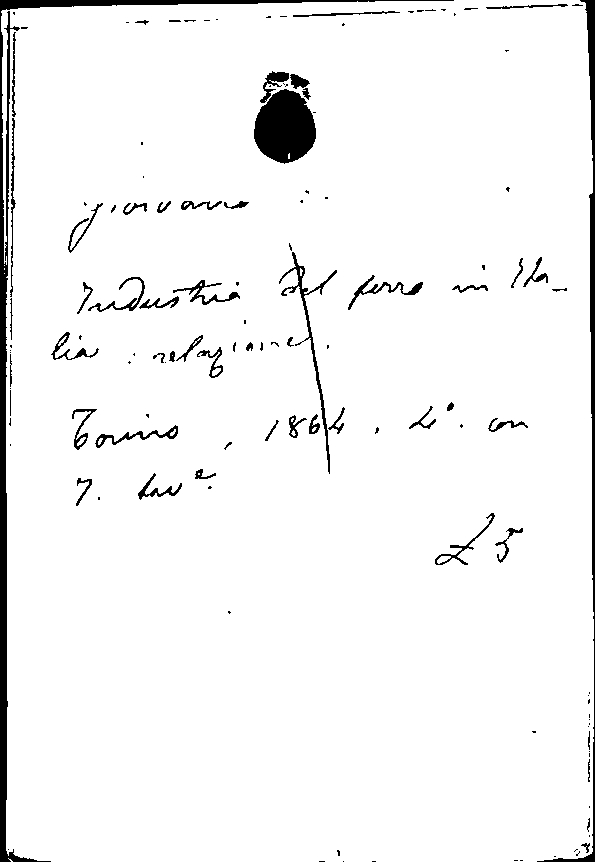 Giovanni
Industria del ferro in Ita_
lia : relazione.
Torino, 1864, 4°. con
7. tavᵉ.
£ 5